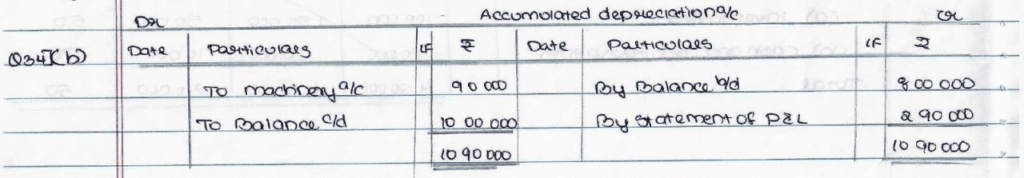 Accumulated depreciation a/c
Dr Cr
Q34](b) Date Particulars LF ₹ Date Particulars LF ₹
To machinery a/c 90 000 By Balance b/d 800 000
To Balance c/d 10 00 000 By Statement of P&L 290 000
10 90 000 10 90 000